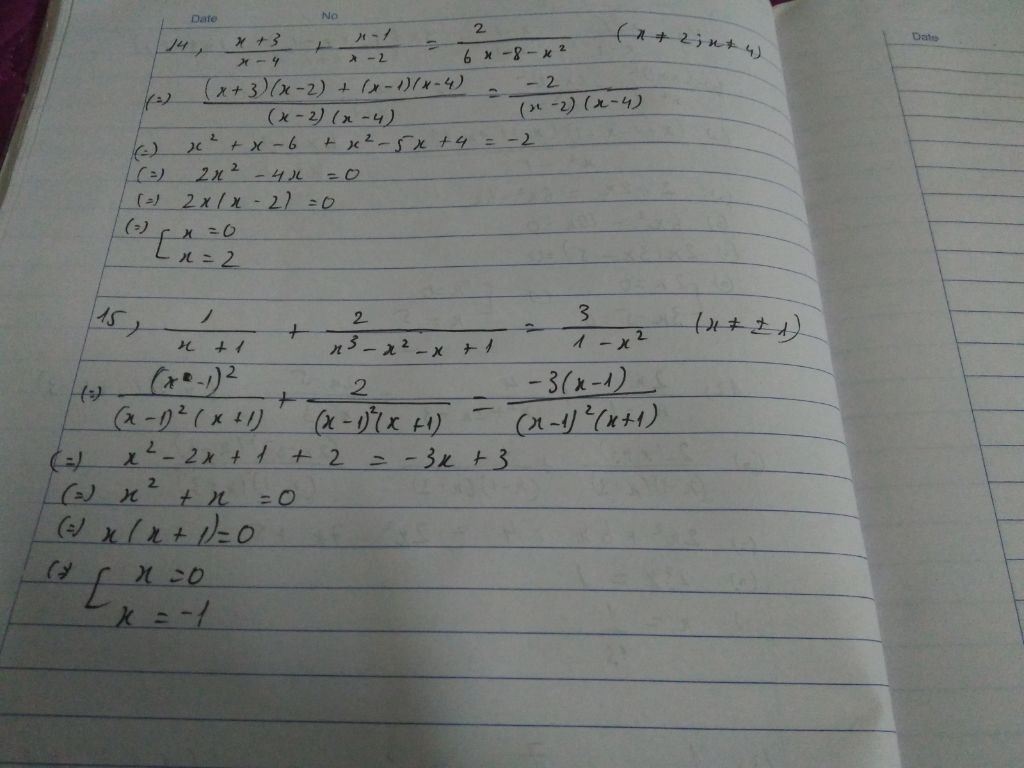 Date No
14, (x+3)/(x-4) + (x-1)/(x-2) = 2/(6x-8-x²) (x≠2; x≠4)
(=) ((x+3)(x-2) + (x-1)(x-4))/((x-2)(x-4)) = -2/((x-2)(x-4))
(=) x² + x - 6 + x² - 5x + 4 = -2
(=) 2x² - 4x = 0
(=) 2x(x-2) = 0
(=) [ x = 0
x = 2
15, 1/(x+1) + 2/(x³-x²-x+1) = 3/(1-x²) (x≠±1)
(=) (x-1)²/((x-1)²(x+1)) + 2/((x-1)²(x+1)) = -3(x-1)/((x-1)²(x+1))
(=) x² - 2x + 1 + 2 = -3x + 3
(=) x² + x = 0
(=) x(x+1) = 0
(=) [ x = 0
x = -1
Date